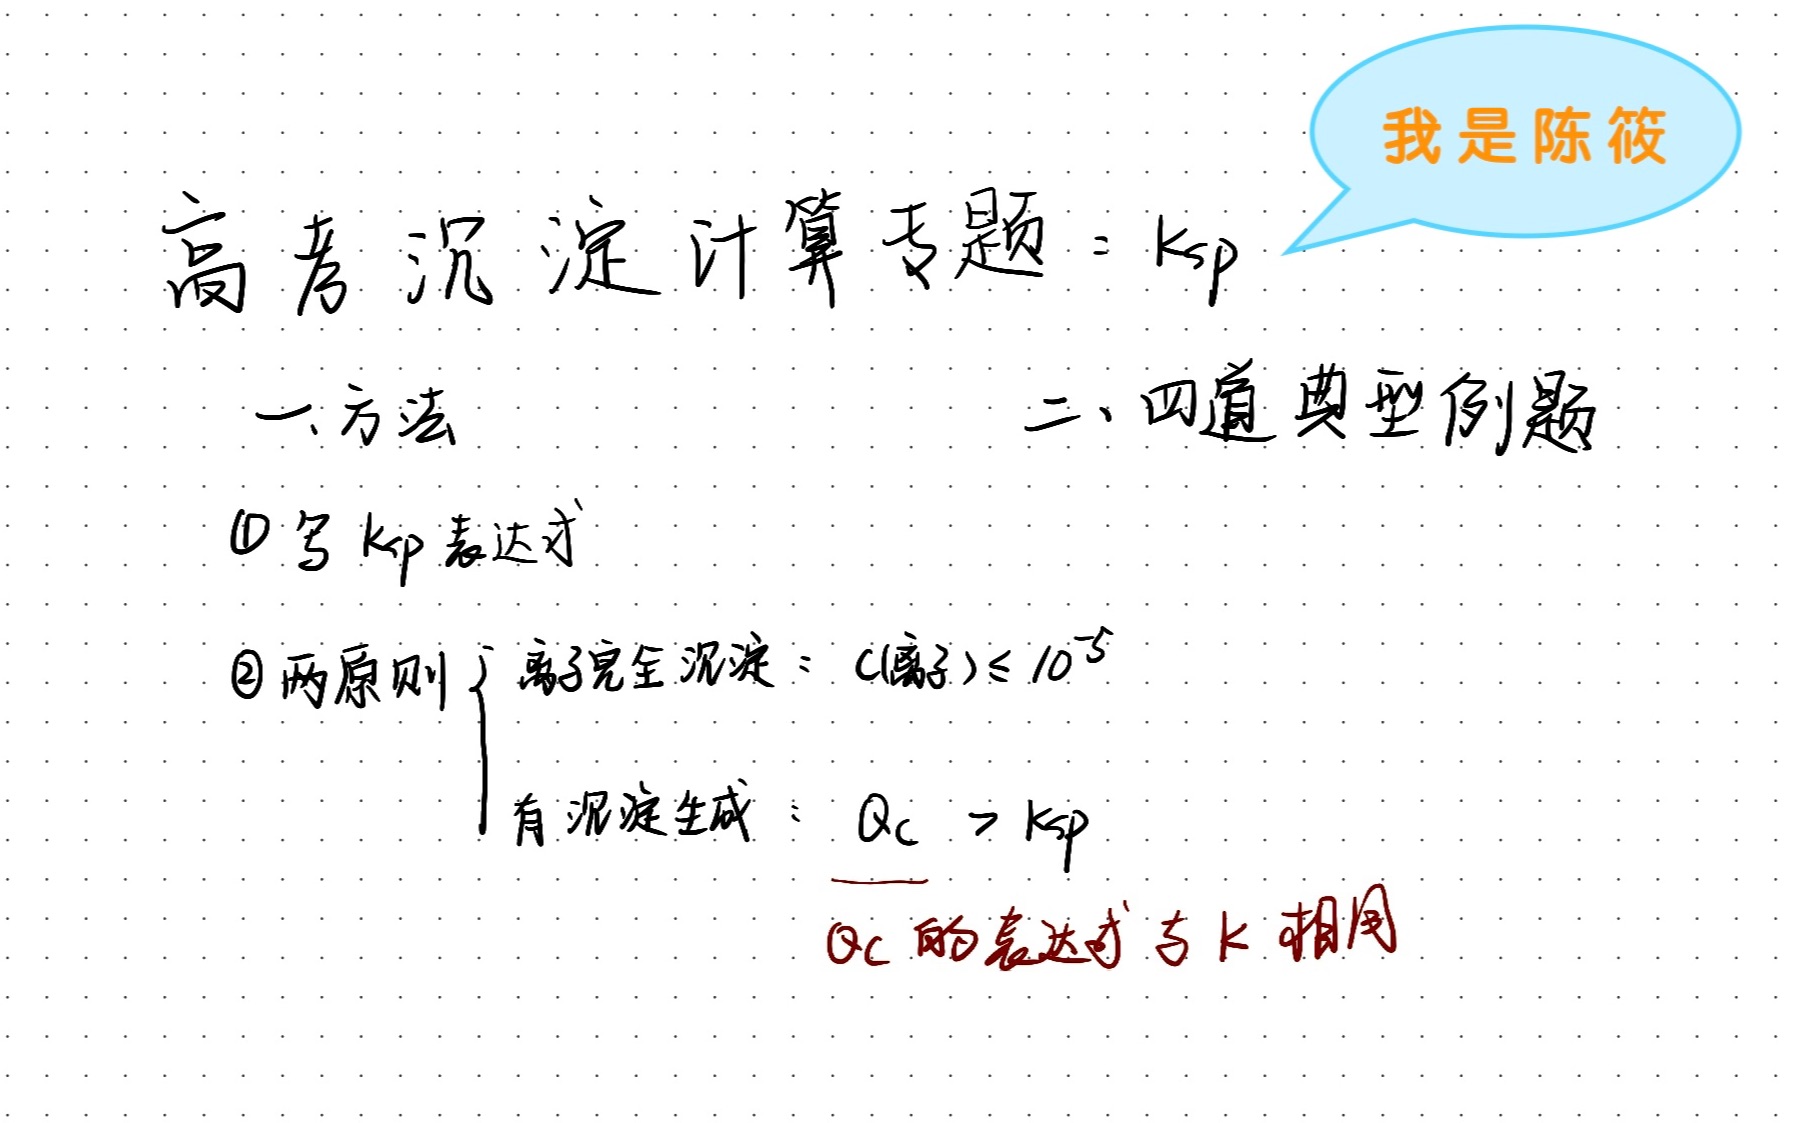 我是陈筱
高考沉淀计算专题：Ksp
一、方法
二、四道典型例题
①写Ksp表达式
②两原则{离子完全沉淀：C(离子)≤10⁻⁵
有沉淀生成：Qc > Ksp
Qc的表达式与K相同